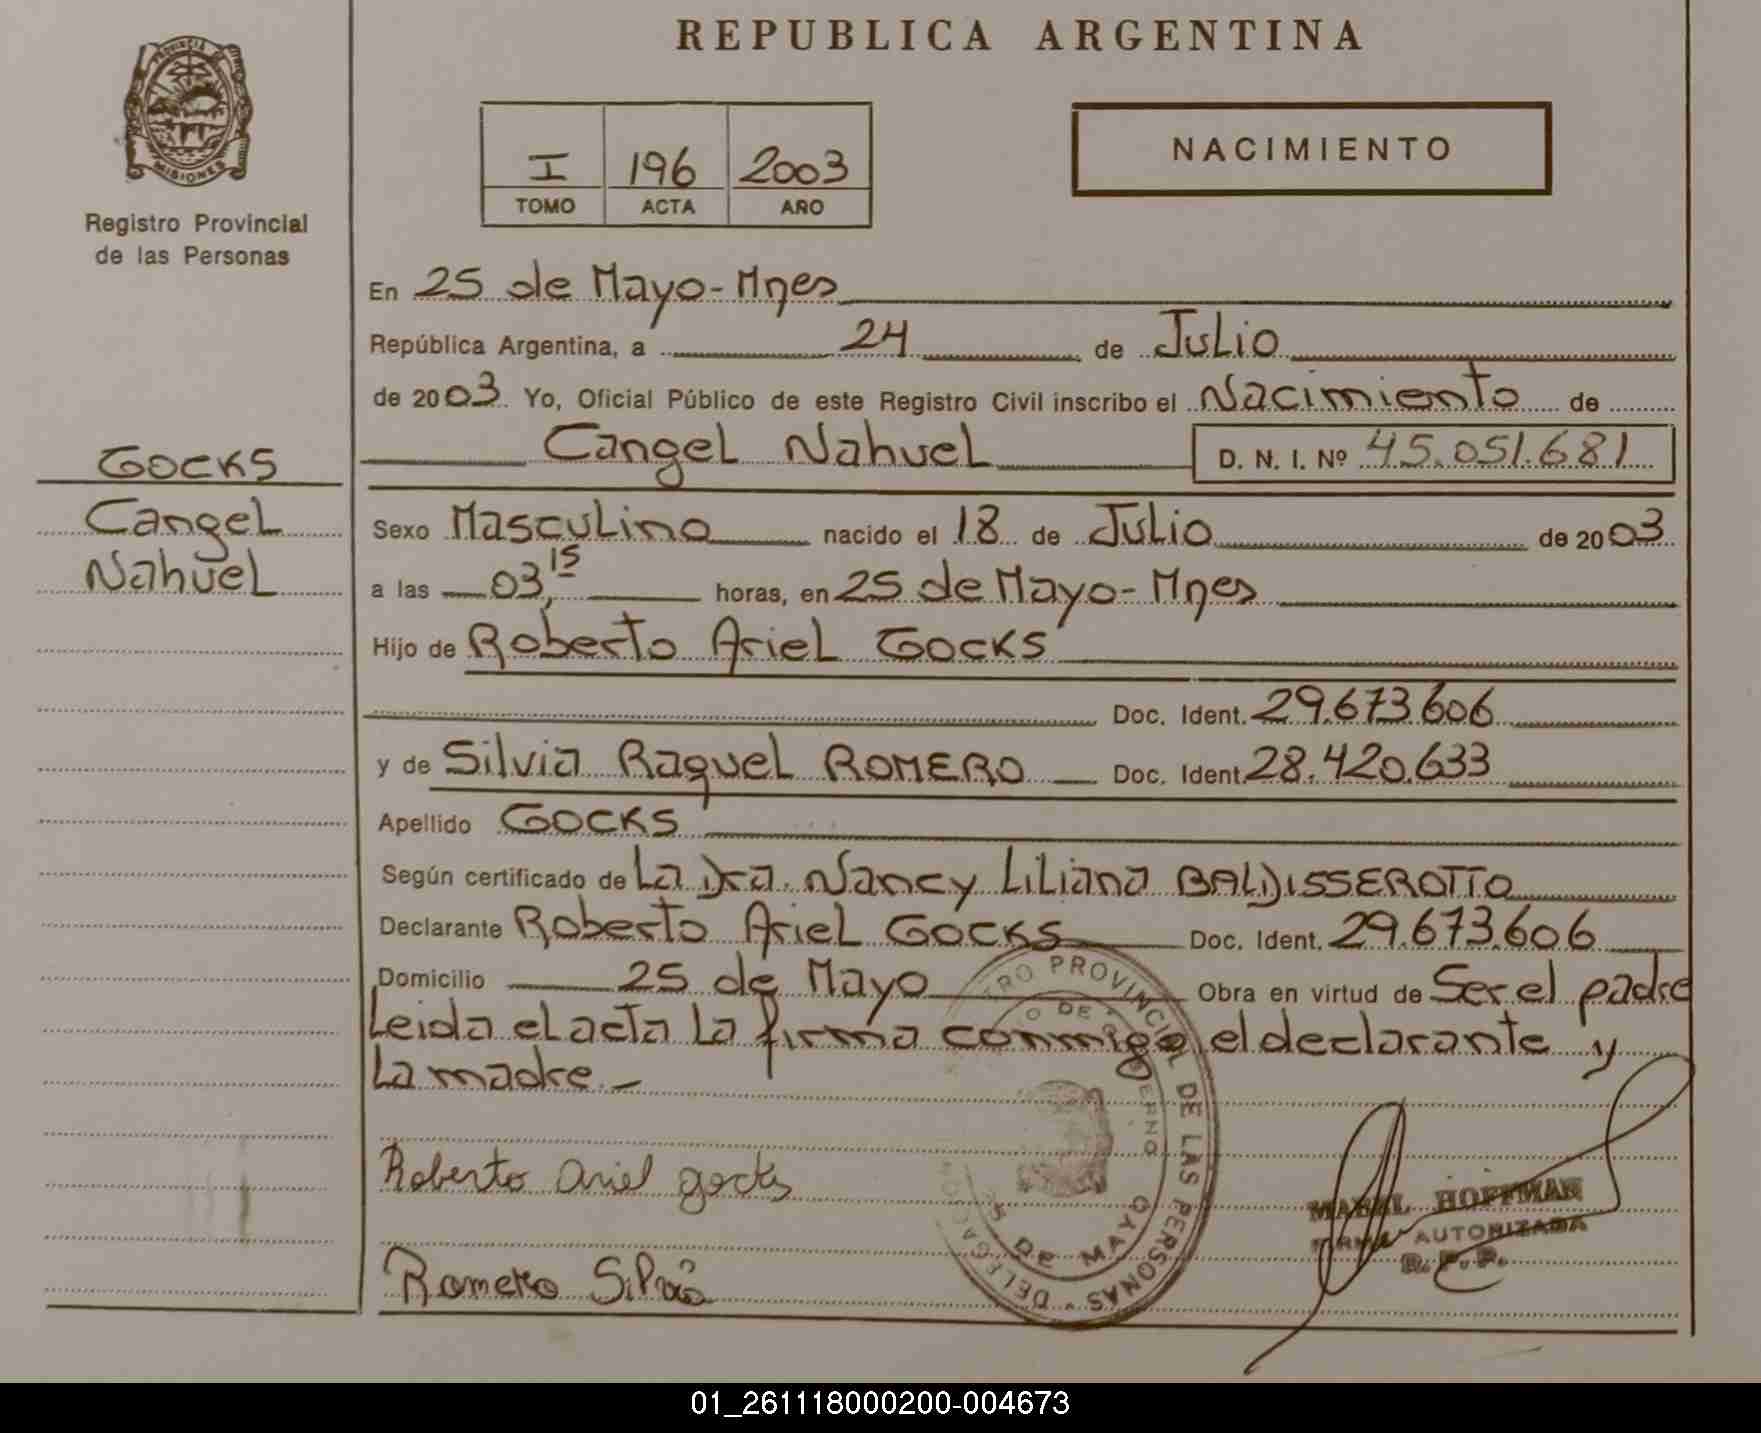 REPUBLICA ARGENTINA
PROVINCIA
MISIONES
Registro Provincial
de las Personas
I 196 2003
TOMO ACTA AÑO
NACIMIENTO
En 25 de Mayo - Mnes
República Argentina, a 24 de Julio
de 2003. Yo, Oficial Público de este Registro Civil inscribo el Nacimiento de
Cangel Nahuel D. N. I. Nº 45.051.681
GOCKS
Cangel
Nahuel
Sexo Masculino nacido el 18 de Julio de 2003
a las 03,15 horas, en 25 de Mayo - Mnes
Hijo de Roberto Ariel GOCKS
Doc. Ident. 29.673.606
y de Silvia Raquel ROMERO Doc. Ident. 28.420.633
Apellido GOCKS
Según certificado de La Dra. Nancy Liliana BALDISSEROTTO
Declarante Roberto Ariel GOCKS Doc. Ident. 29.673.606
Domicilio 25 de Mayo Obra en virtud de Ser el padre
Leida el acta la firma conmigo el declarante y
La madre.-
Roberto Ariel gocks
Romero Silvia
TRO PROVINCIAL DE LAS PERSONAS - DELEGAC
O DE GOBIERNO
25 DE MAYO
MABEL HOFFMAN
FIRMA AUTORIZADA
R. P. P.
01_261118000200-004673